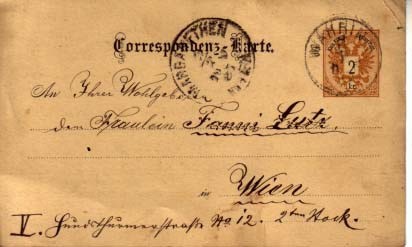 Correspondenz-Karte.
MARGARETHEN WIEN
WÄHRING
2
An Ihrer Wohlgeb
den Fräulein Fanni Lutz.
in Wien
V. Hundsthurmerstraße No 12. 2ten Stock.